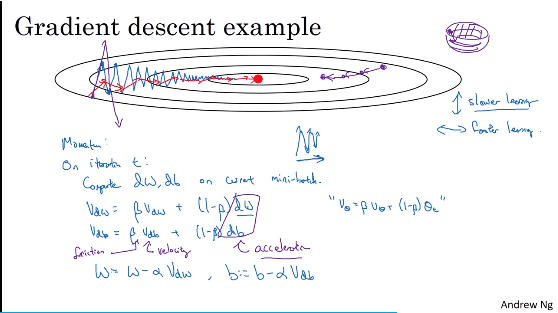 Gradient descent example
slower learning
faster learning.
Momentum:
On iteration t:
Compute dW, db on current mini-batch.
Vdw = β Vdw + (1-β) dW
Vdb = β Vdb + (1-β) db
"Vθ = β Vθ + (1-β) θt"
friction velocity acceleration
W = W - α Vdw , b := b - α Vdb
Andrew Ng